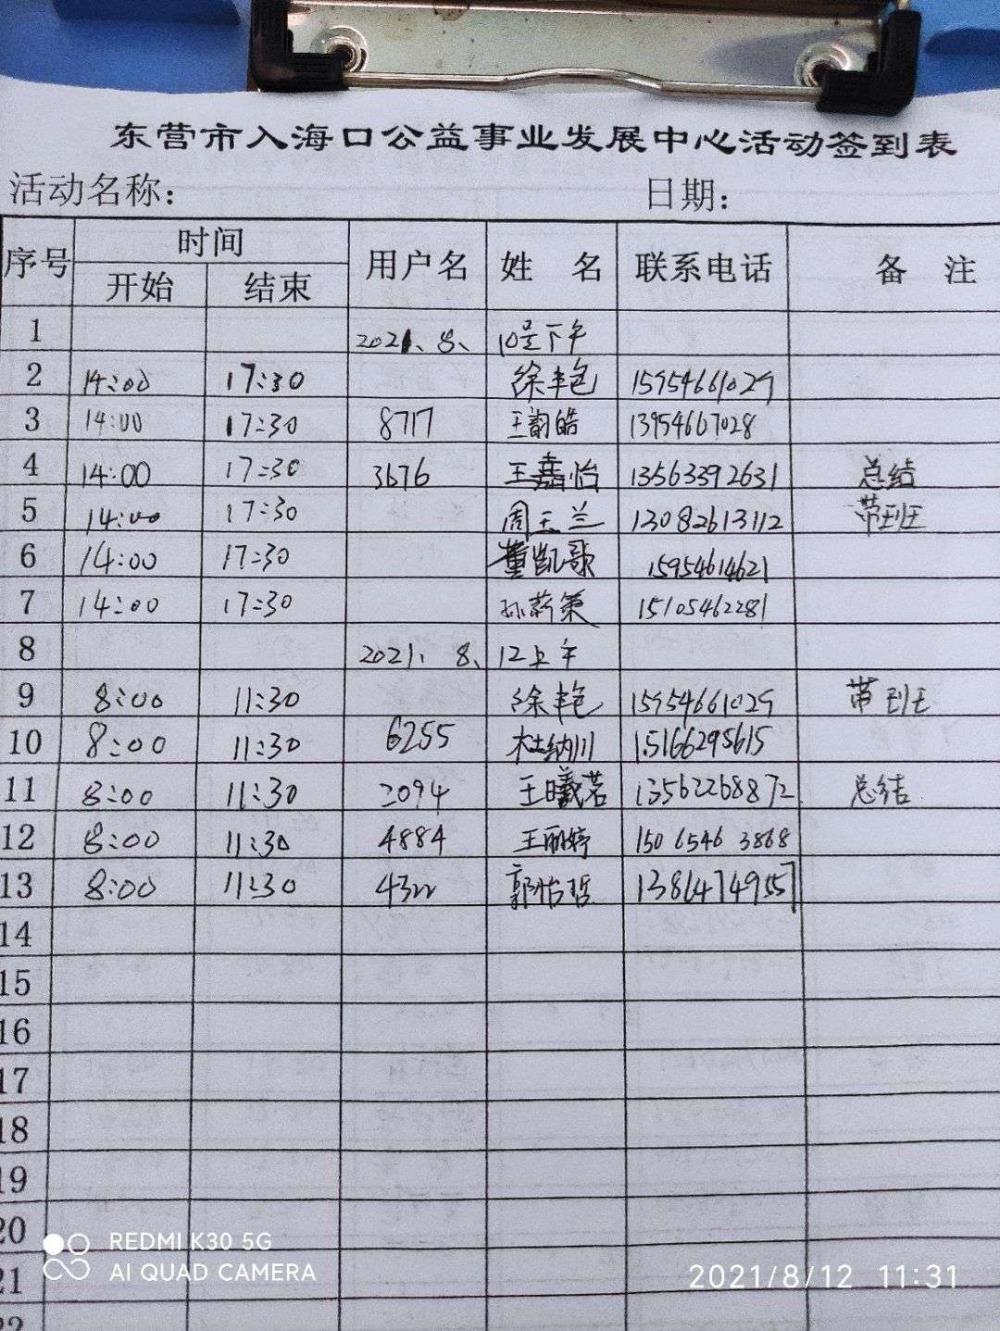 东营市入海口公益事业发展中心活动签到表
活动名称： 日期：
序号 时间 用户名 姓 名 联系电话 备 注
开始 结束
1 2021、8、10号下午
2 14:00 17:30 徐丰艳 15954661029
3 14:00 17:30 8717 王韵皓 13954667028
4 14:00 17:30 3676 王嘉怡 13563392631 总结
5 14:00 17:30 周玉兰 13082613112 带班
6 14:00 17:30 董凯歌 15954614621
7 14:00 17:30 孙 15105462281
8 2021、8、12上午
9 8:00 11:30 徐丰艳 15954661029 带班
10 8:00 11:30 6255 杜纳川 15166295615
11 8:00 11:30 2094 王曦若 13562268872 总结
12 8:00 11:30 4884 王丽婷 150 6546 3868
13 8:00 11:30 4322 郭怡哲 13814749557
14
15
16
17
18
19
20
21
22
REDMI K30 5G
AI QUAD CAMERA
2021/8/12 11:31